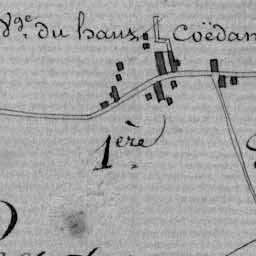 Vge. du haux Coëdan
1ère